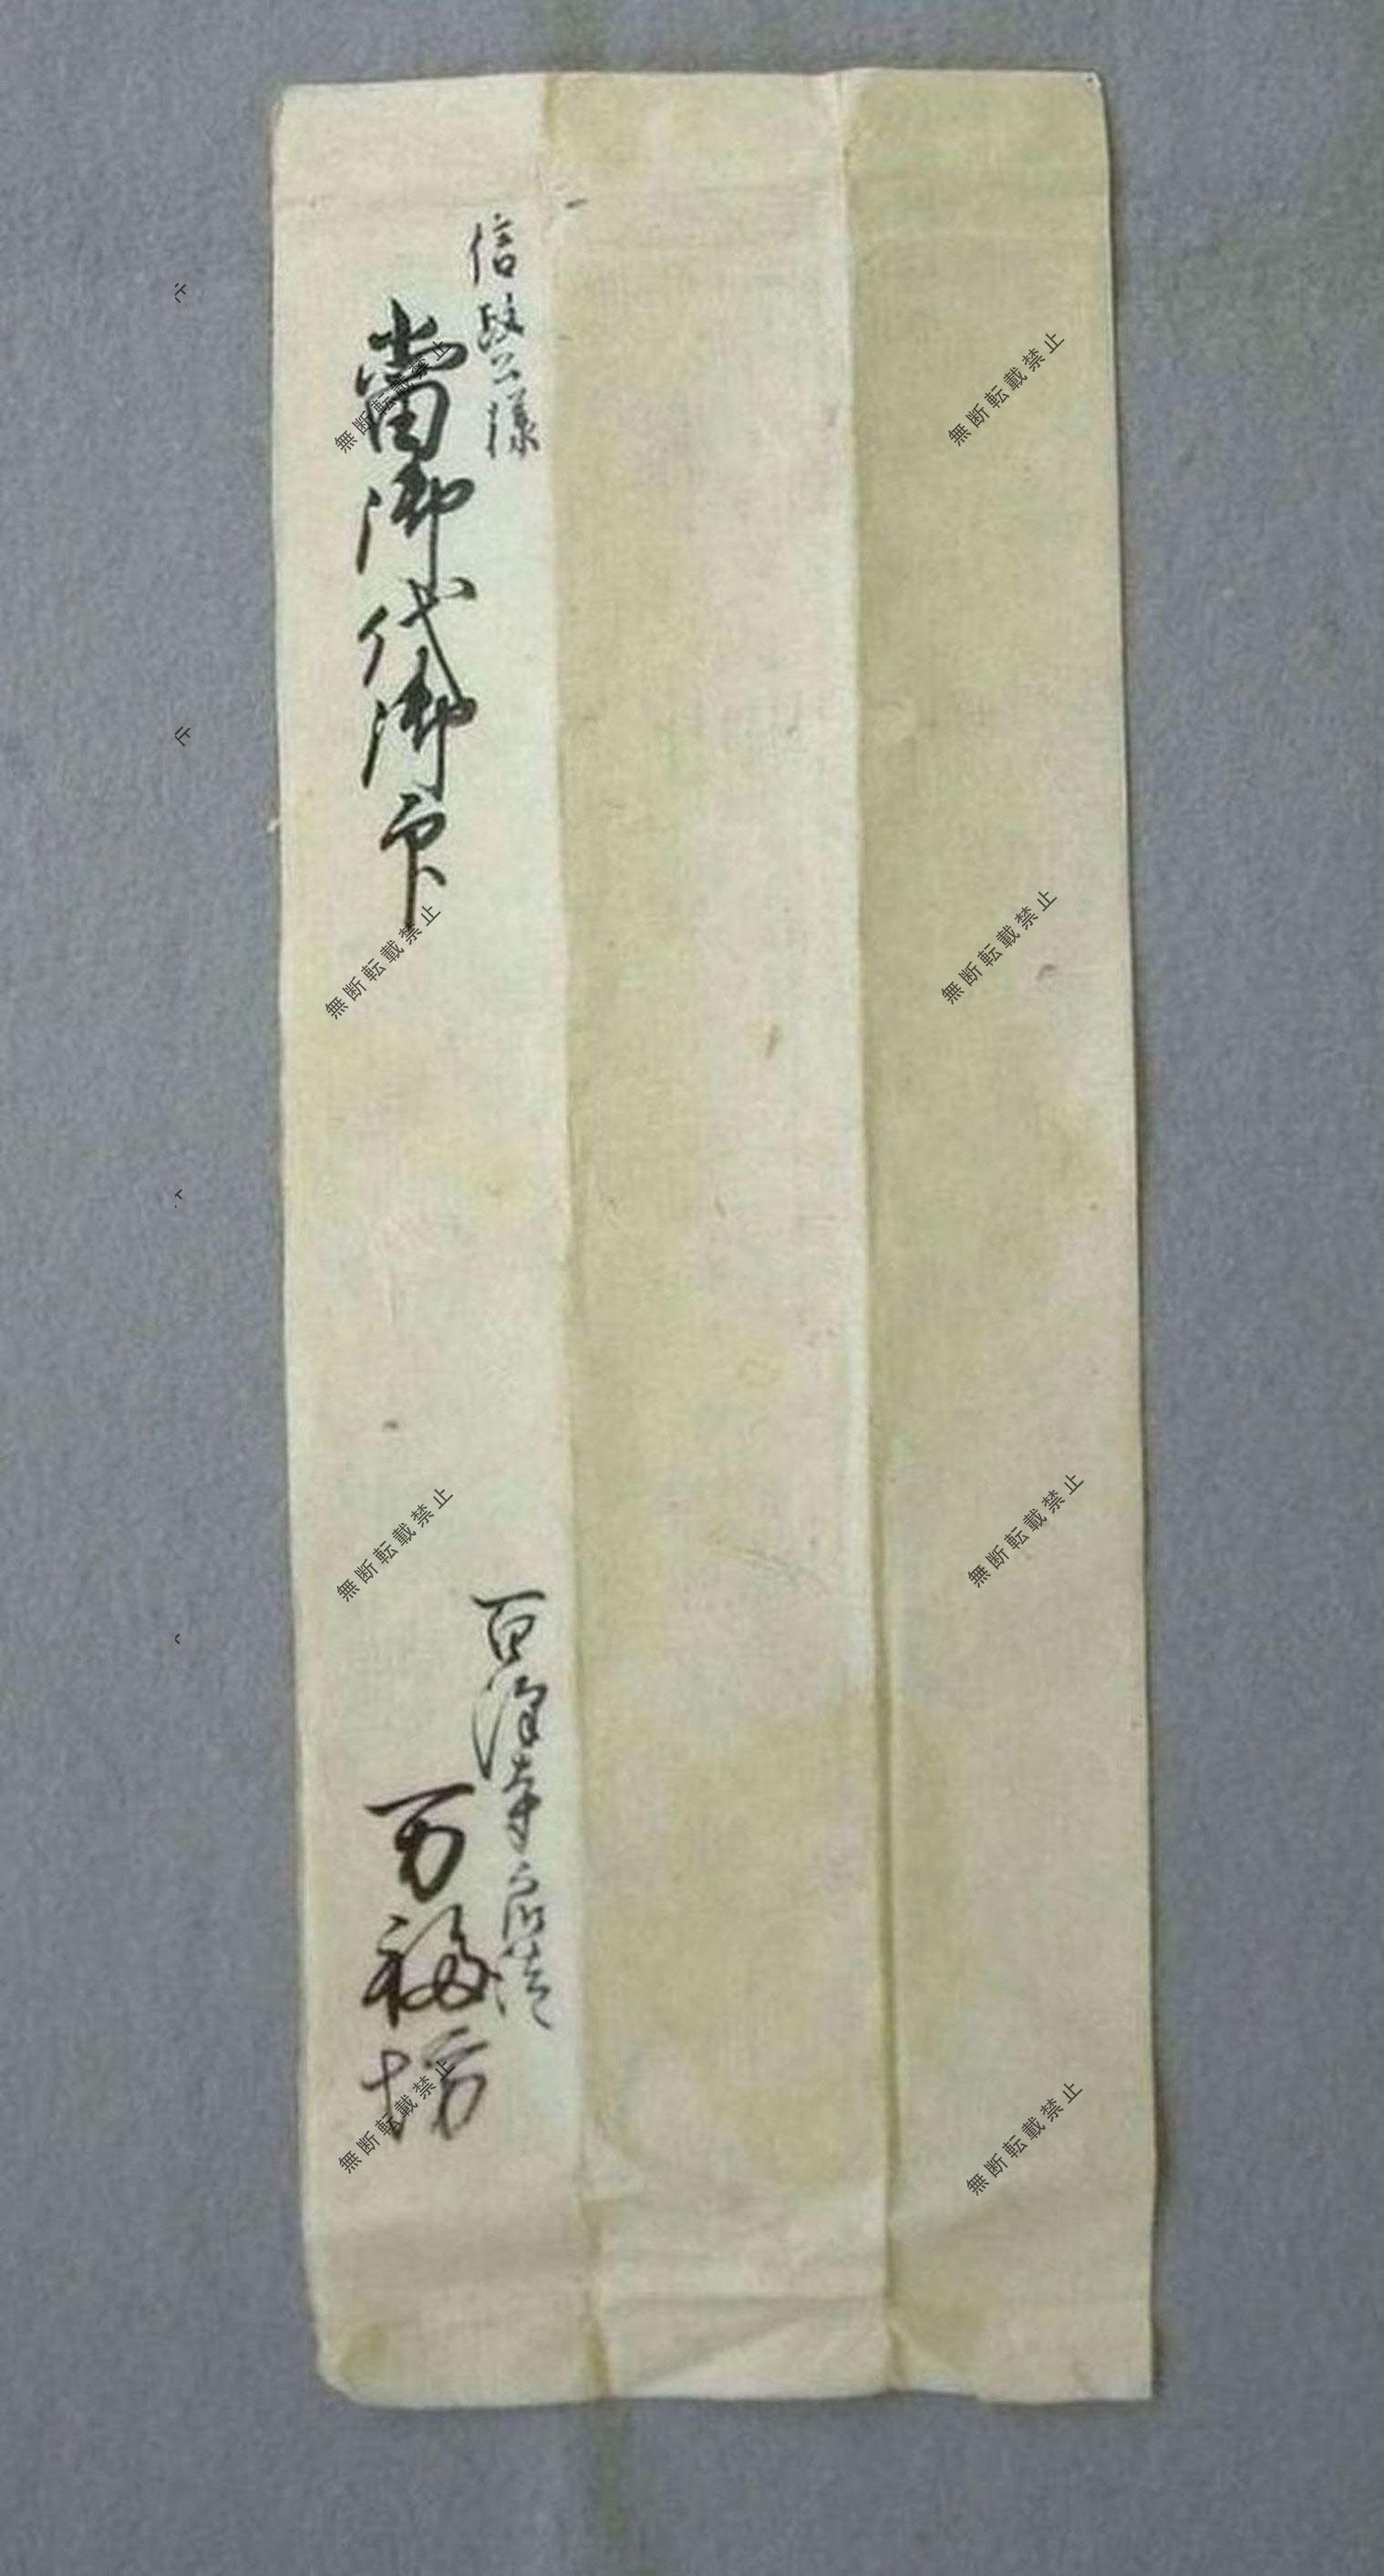 信政公様
當御代御印
百澤寺
万福坊
無断転載禁止
無断転載禁止
無断転載禁止
無断転載禁止
無断転載禁止
無断転載禁止
無断転載禁止
無断転載禁止